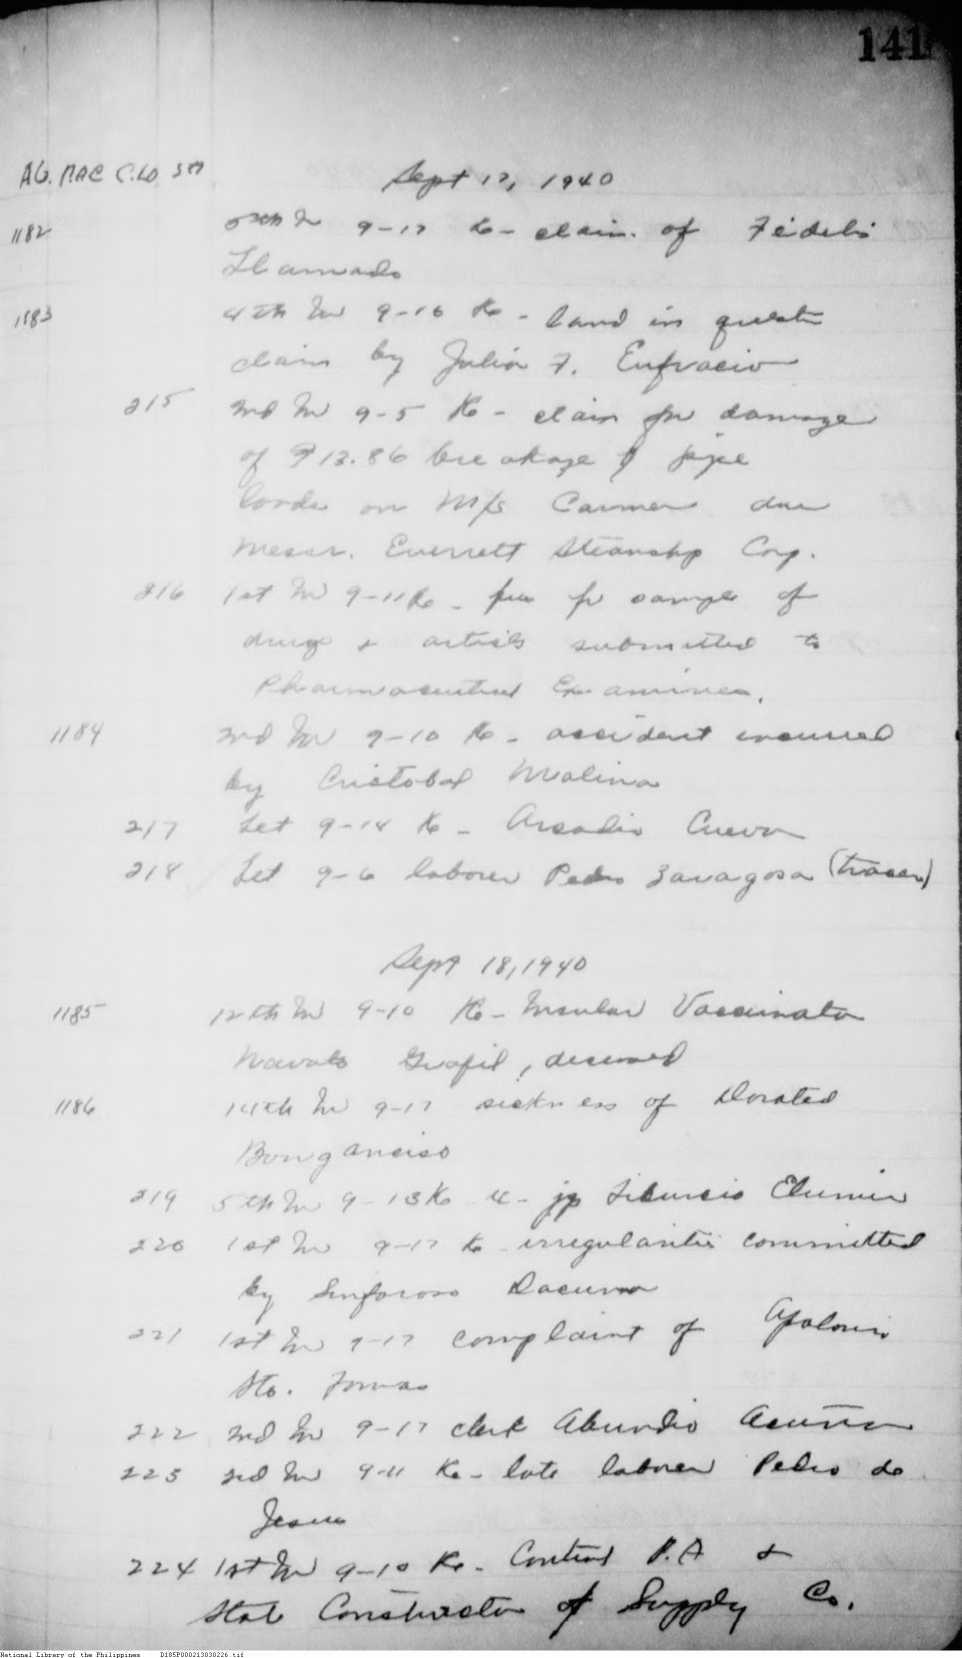 141
AG. MAC C.LO
Sept 17, 1940
1182 9-17 Re- claim of Fidelis
Llamado
1183 4th In 9-16 Re - land in
claim by Julia F. Eufracio
215 2nd In 9-5 Re - claim for damage
of ₱13.86 breakage of pipe
loads on M/s Carmen due
Messr. Everrett Steamship Corp.
216 1st In 9-11 Re - fee for sample of
drugs & articles submitted to
Pharmaceutical Examiners.
1184 2nd In 9-10 Re - accident incurred
by Cristobal Molina
217 Let 9-14 Re - Arcadio Cueva
218 Let 9-6 laborer Pedro Zaragosa
Sept 18, 1940
1185 12th In 9-10 Re - Insular Vaccinator
deceased
1186 14th In 9-17 sickness of
Bonganciso
219 5th In 9-13 Re jp
220 1st In 9-17 Re - irregularities committed
by Sinforoso
221 1st In 9-17 complaint of Apolonio
Sto. Tomas
222 2nd In 9-17 clerk Abundio Acuña
223 In 9-11 Re - late laborer Pedro de
Jesus
224 1st In 9-10 Re - Contract P.A &
Construction of Supply Co.
National Library of the Philippines D185P000213030226.tif